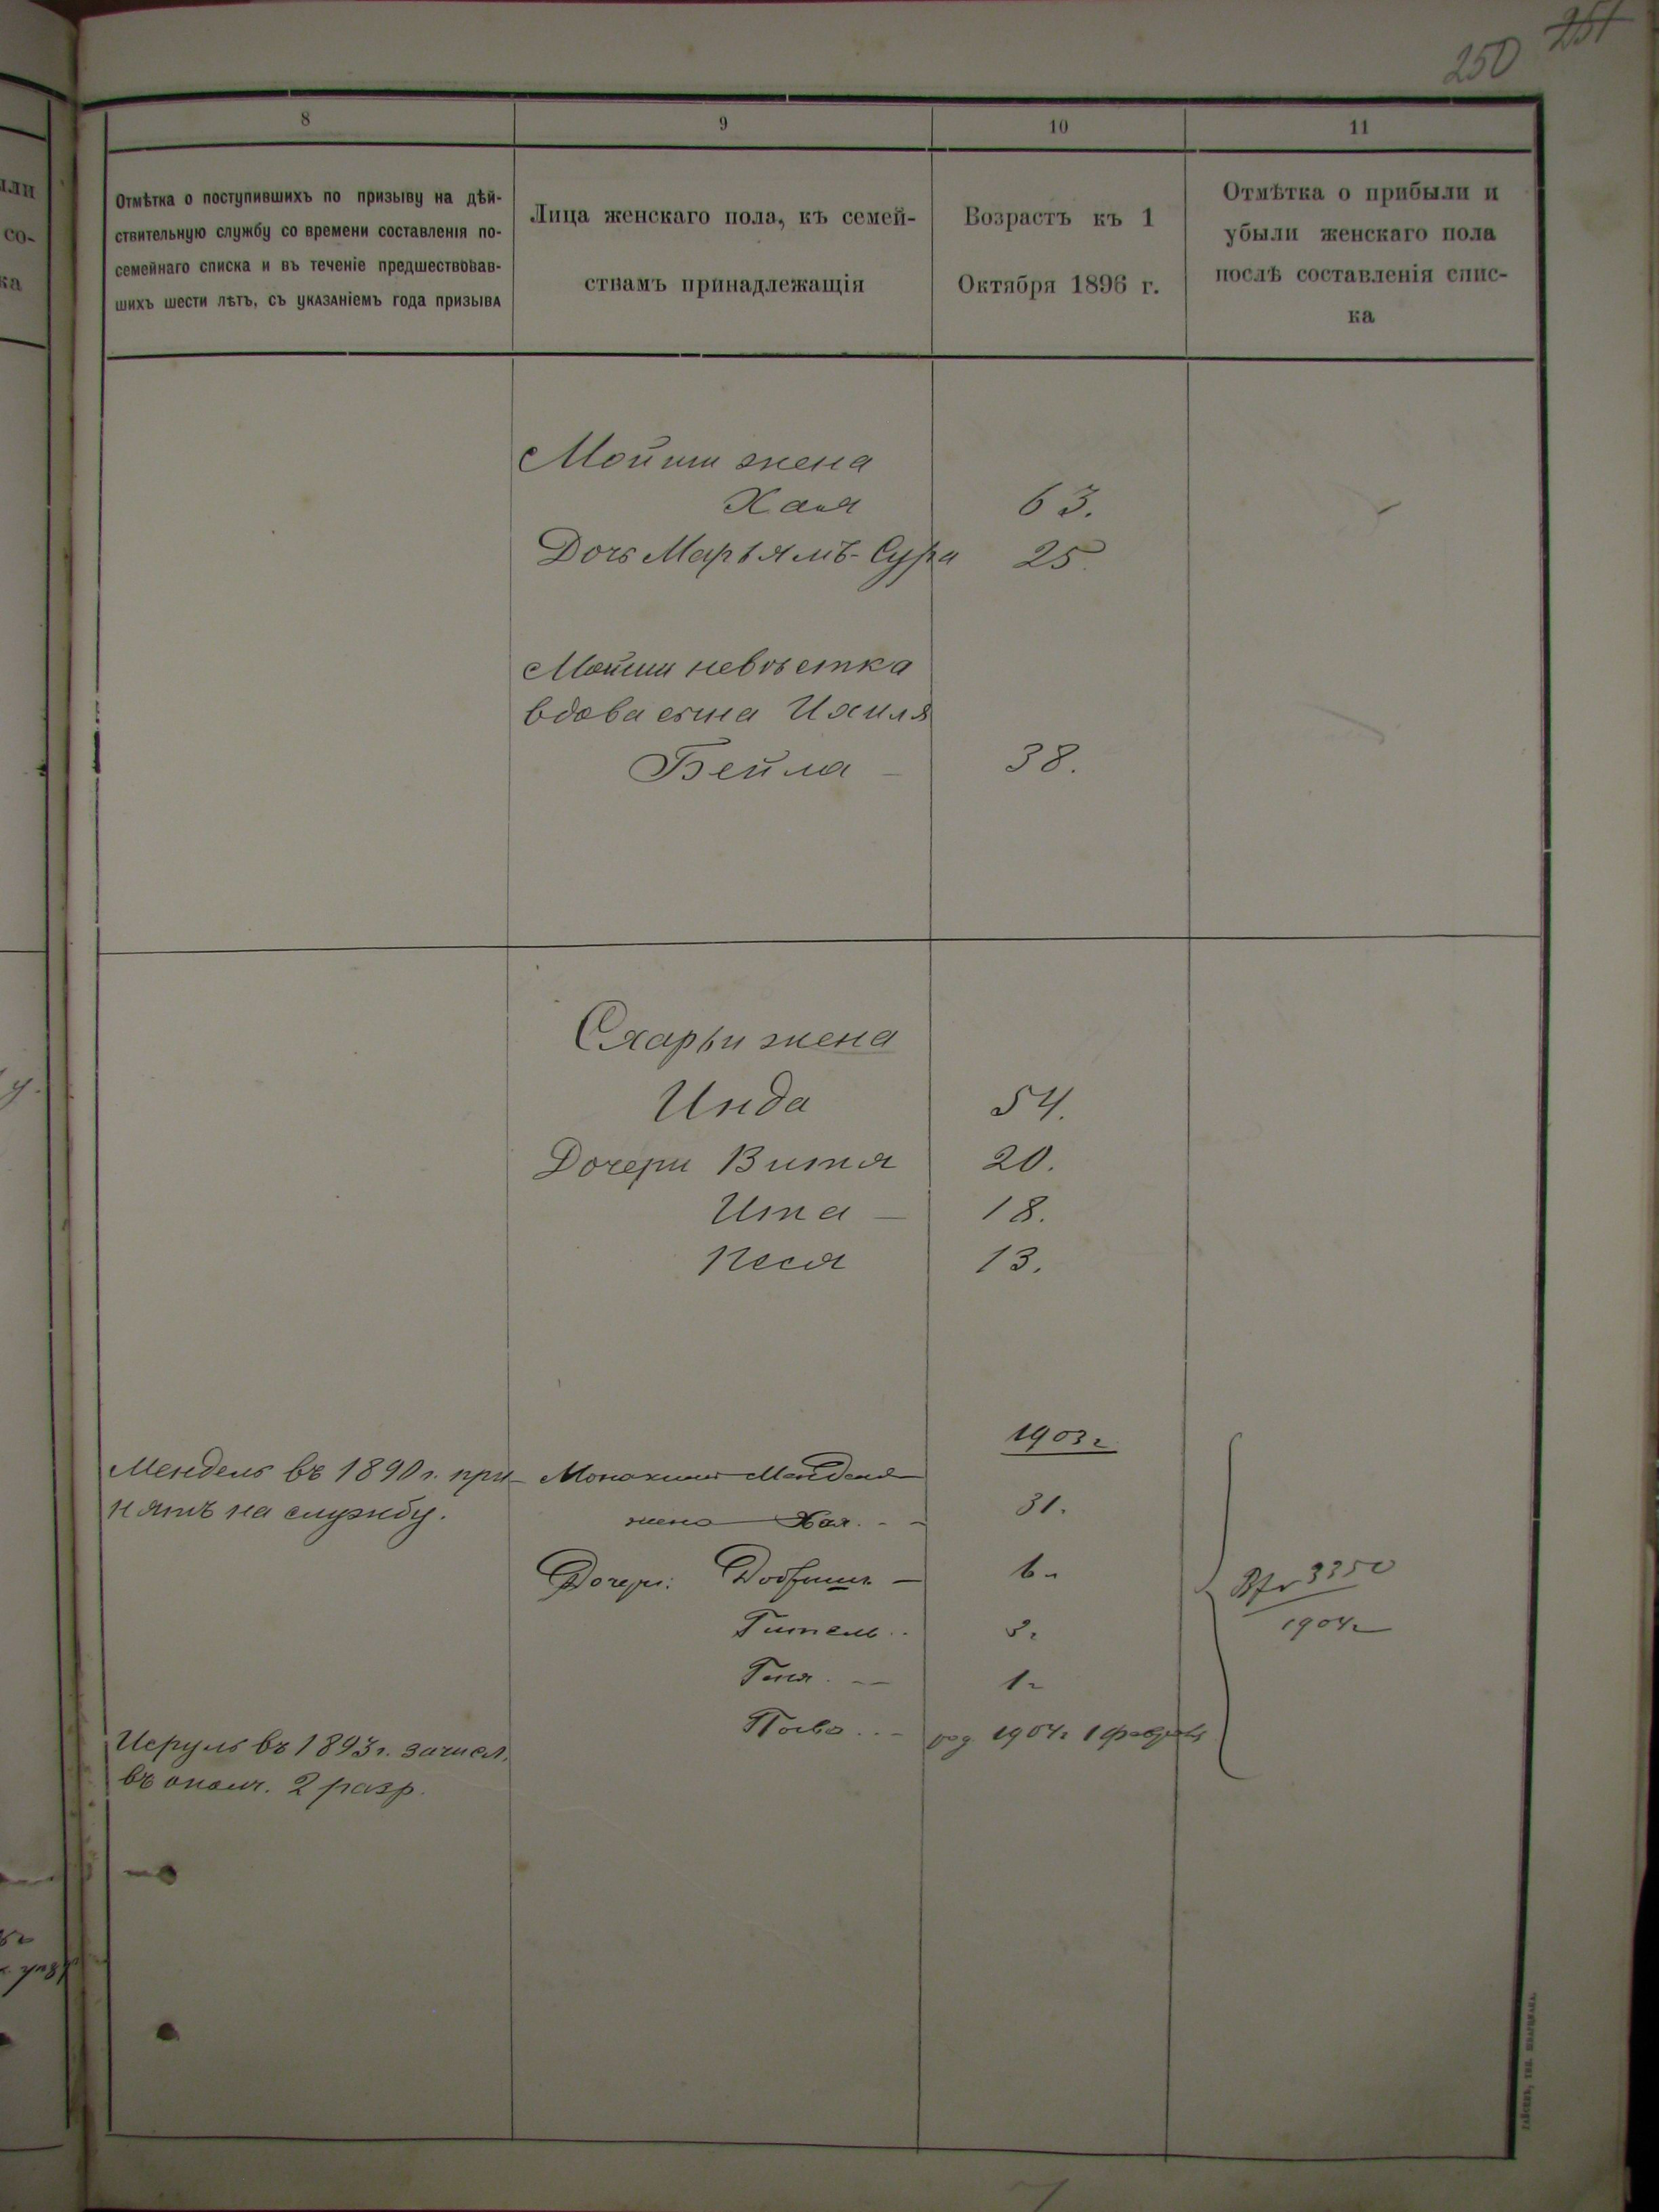 250 251
8
9
10
11
Отмѣтка о поступившихъ по призыву на дѣй-
ствительную службу со времени составленія по-
семейнаго списка и въ теченіе предшествовав-
шихъ шести лѣтъ, съ указаніемъ года призыва
Лица женскаго пола, къ семей-
ствамъ принадлежащія
Возрастъ къ 1
Октября 1896 г.
Отмѣтка о прибыли и
убыли женскаго пола
послѣ составленія спис-
ка
Мойши жена
Хая 63.
Дочь Марьямъ-Сура 25.
Мойши невѣстка
вдова сына
Бейла 38.
Схарьи жена
Инда 54.
Дочери Витя 20.
Ита 18.
Песя 13.
1903 г
Мендель въ 1890 г. при-
нятъ на службу.
Менделя
жена Хая. 31.
Дочери:
6
Гитель
3
Геня 1
род. 1904 г. 1 февраля
3350
1904 г
Исруль въ 1893 г. зачисл.
въ ополч. 2 разр.